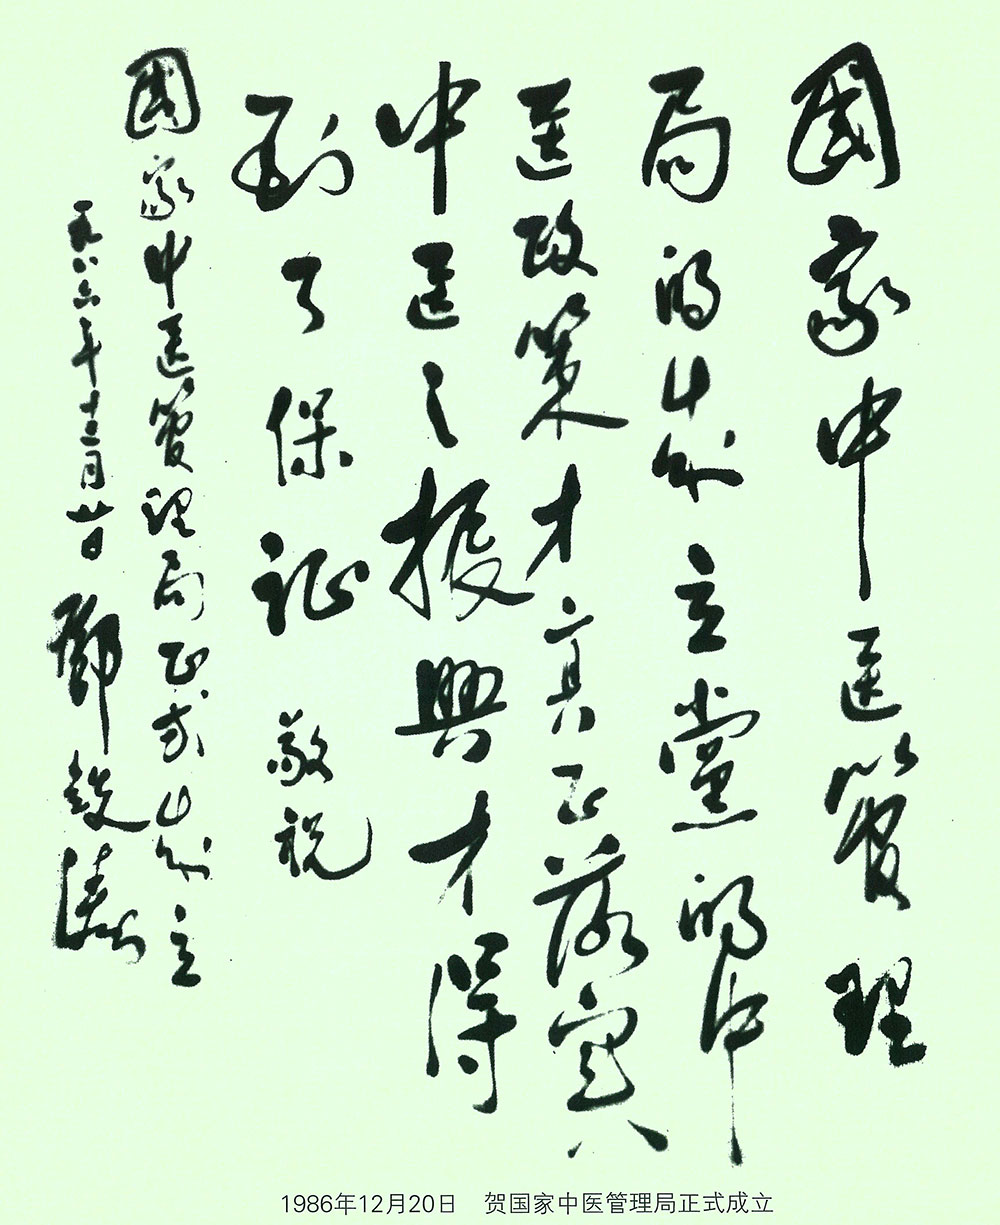 國家中医管理
局的成立黨的中
医政策才真正落實
中医之振興才得
到了保证 敬祝
國家中医管理局正式成立
一九八六年十二月廿日 鄧鉄涛
1986年12月20日 贺国家中医管理局正式成立